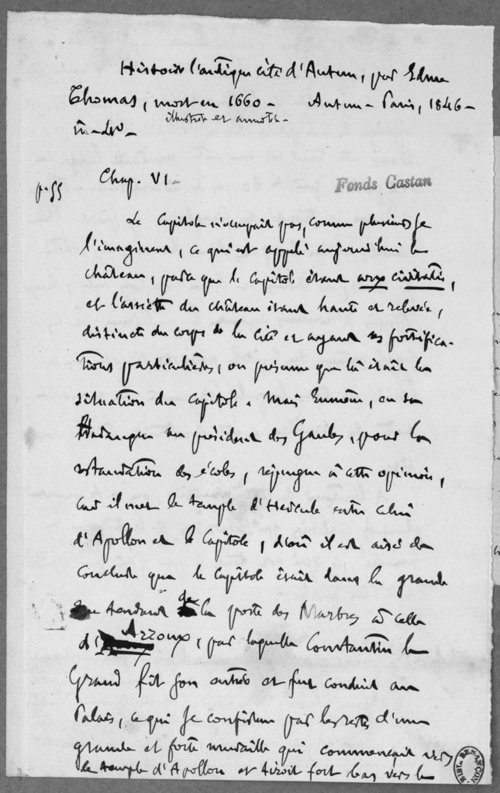 Histoire l'antique cité d'Autun, par Edme
Thomas, mort en 1660 - Autun - Paris, 1846 -
illustrée et annotée -
in-4°. -
Chap. VI -
Fonds Castan
p. 55
Le Capitole n'occupait pas, comme plusieurs se
l'imaginent, ce qui est appelé aujourd'hui le
château, parce que le Capitole étant arx civitatis,
et l'assiette du château étant haute et relevée,
distincte du corps de la cité et ayant ses fortifica-
tions particulières, on présume que là était la
situation du Capitole. Mais Eumène, en sa
Harangue au président des Gaules, pour la
restauration des écoles, répugne à cette opinion,
car il met le temple d'Hercule entre celui
d'Apollon et le Capitole, d'où il est aisé de
conclure que le Capitole était dans la grande
rue tendant de la porte des Marbres à celle
d'Arroux, par laquelle Constantin le
Grand fit son entrée et fut conduit au
Palais, ce qui se confirme par les restes d'une
grande et forte muraille qui commençait vers
le temple d'Apollon et tiroit fort bas vers le